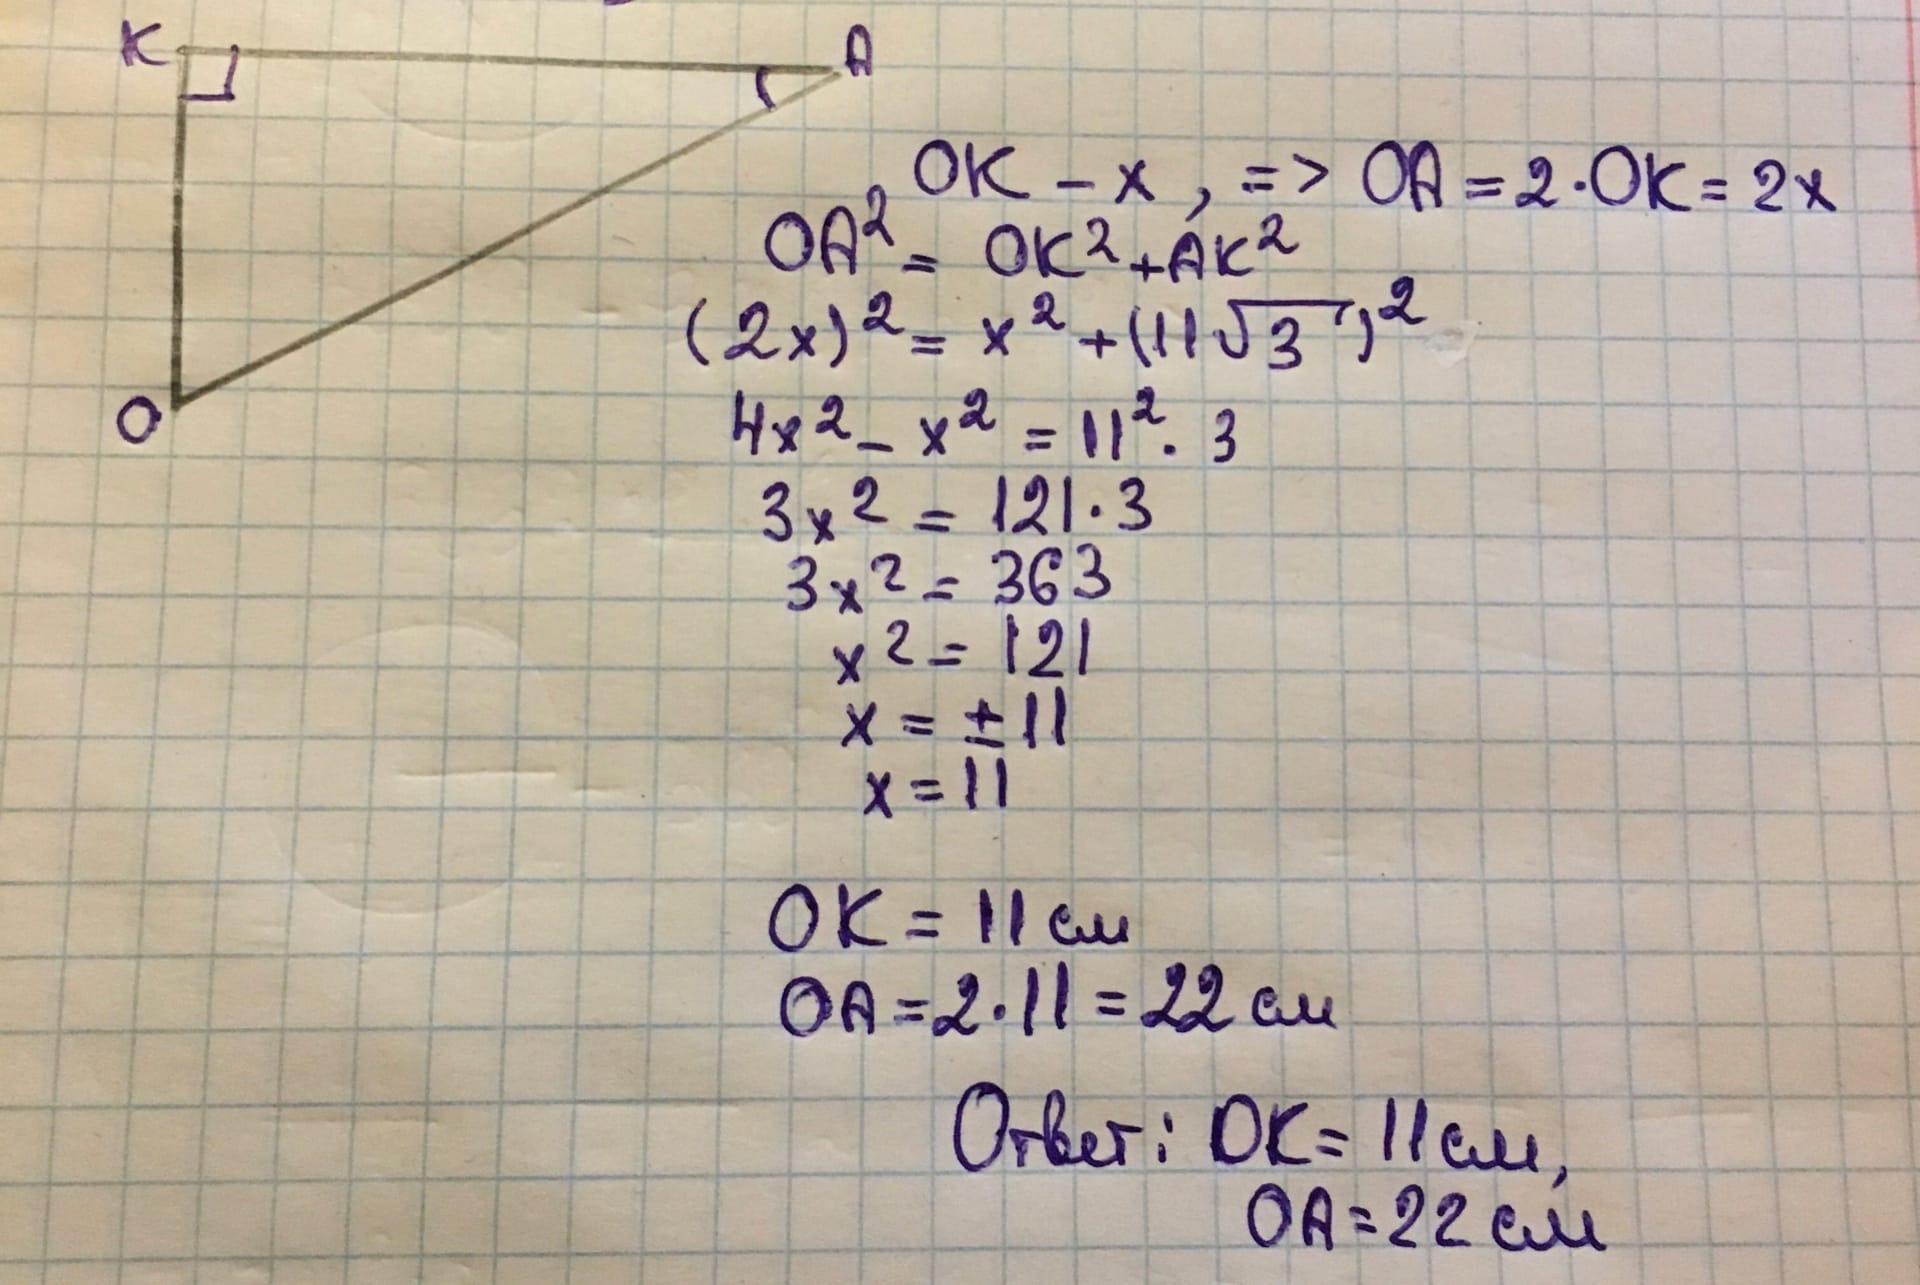 K
A
O
OK - x, => OA = 2·OK = 2x
OA² = OK² + AK²
(2x)² = x² + (11√3)²
4x² - x² = 11² · 3
3x² = 121·3
3x² = 363
x² = 121
x = ±11
x = 11
OK = 11 см
OA = 2·11 = 22 см
Ответ: OK = 11 см,
OA = 22 см